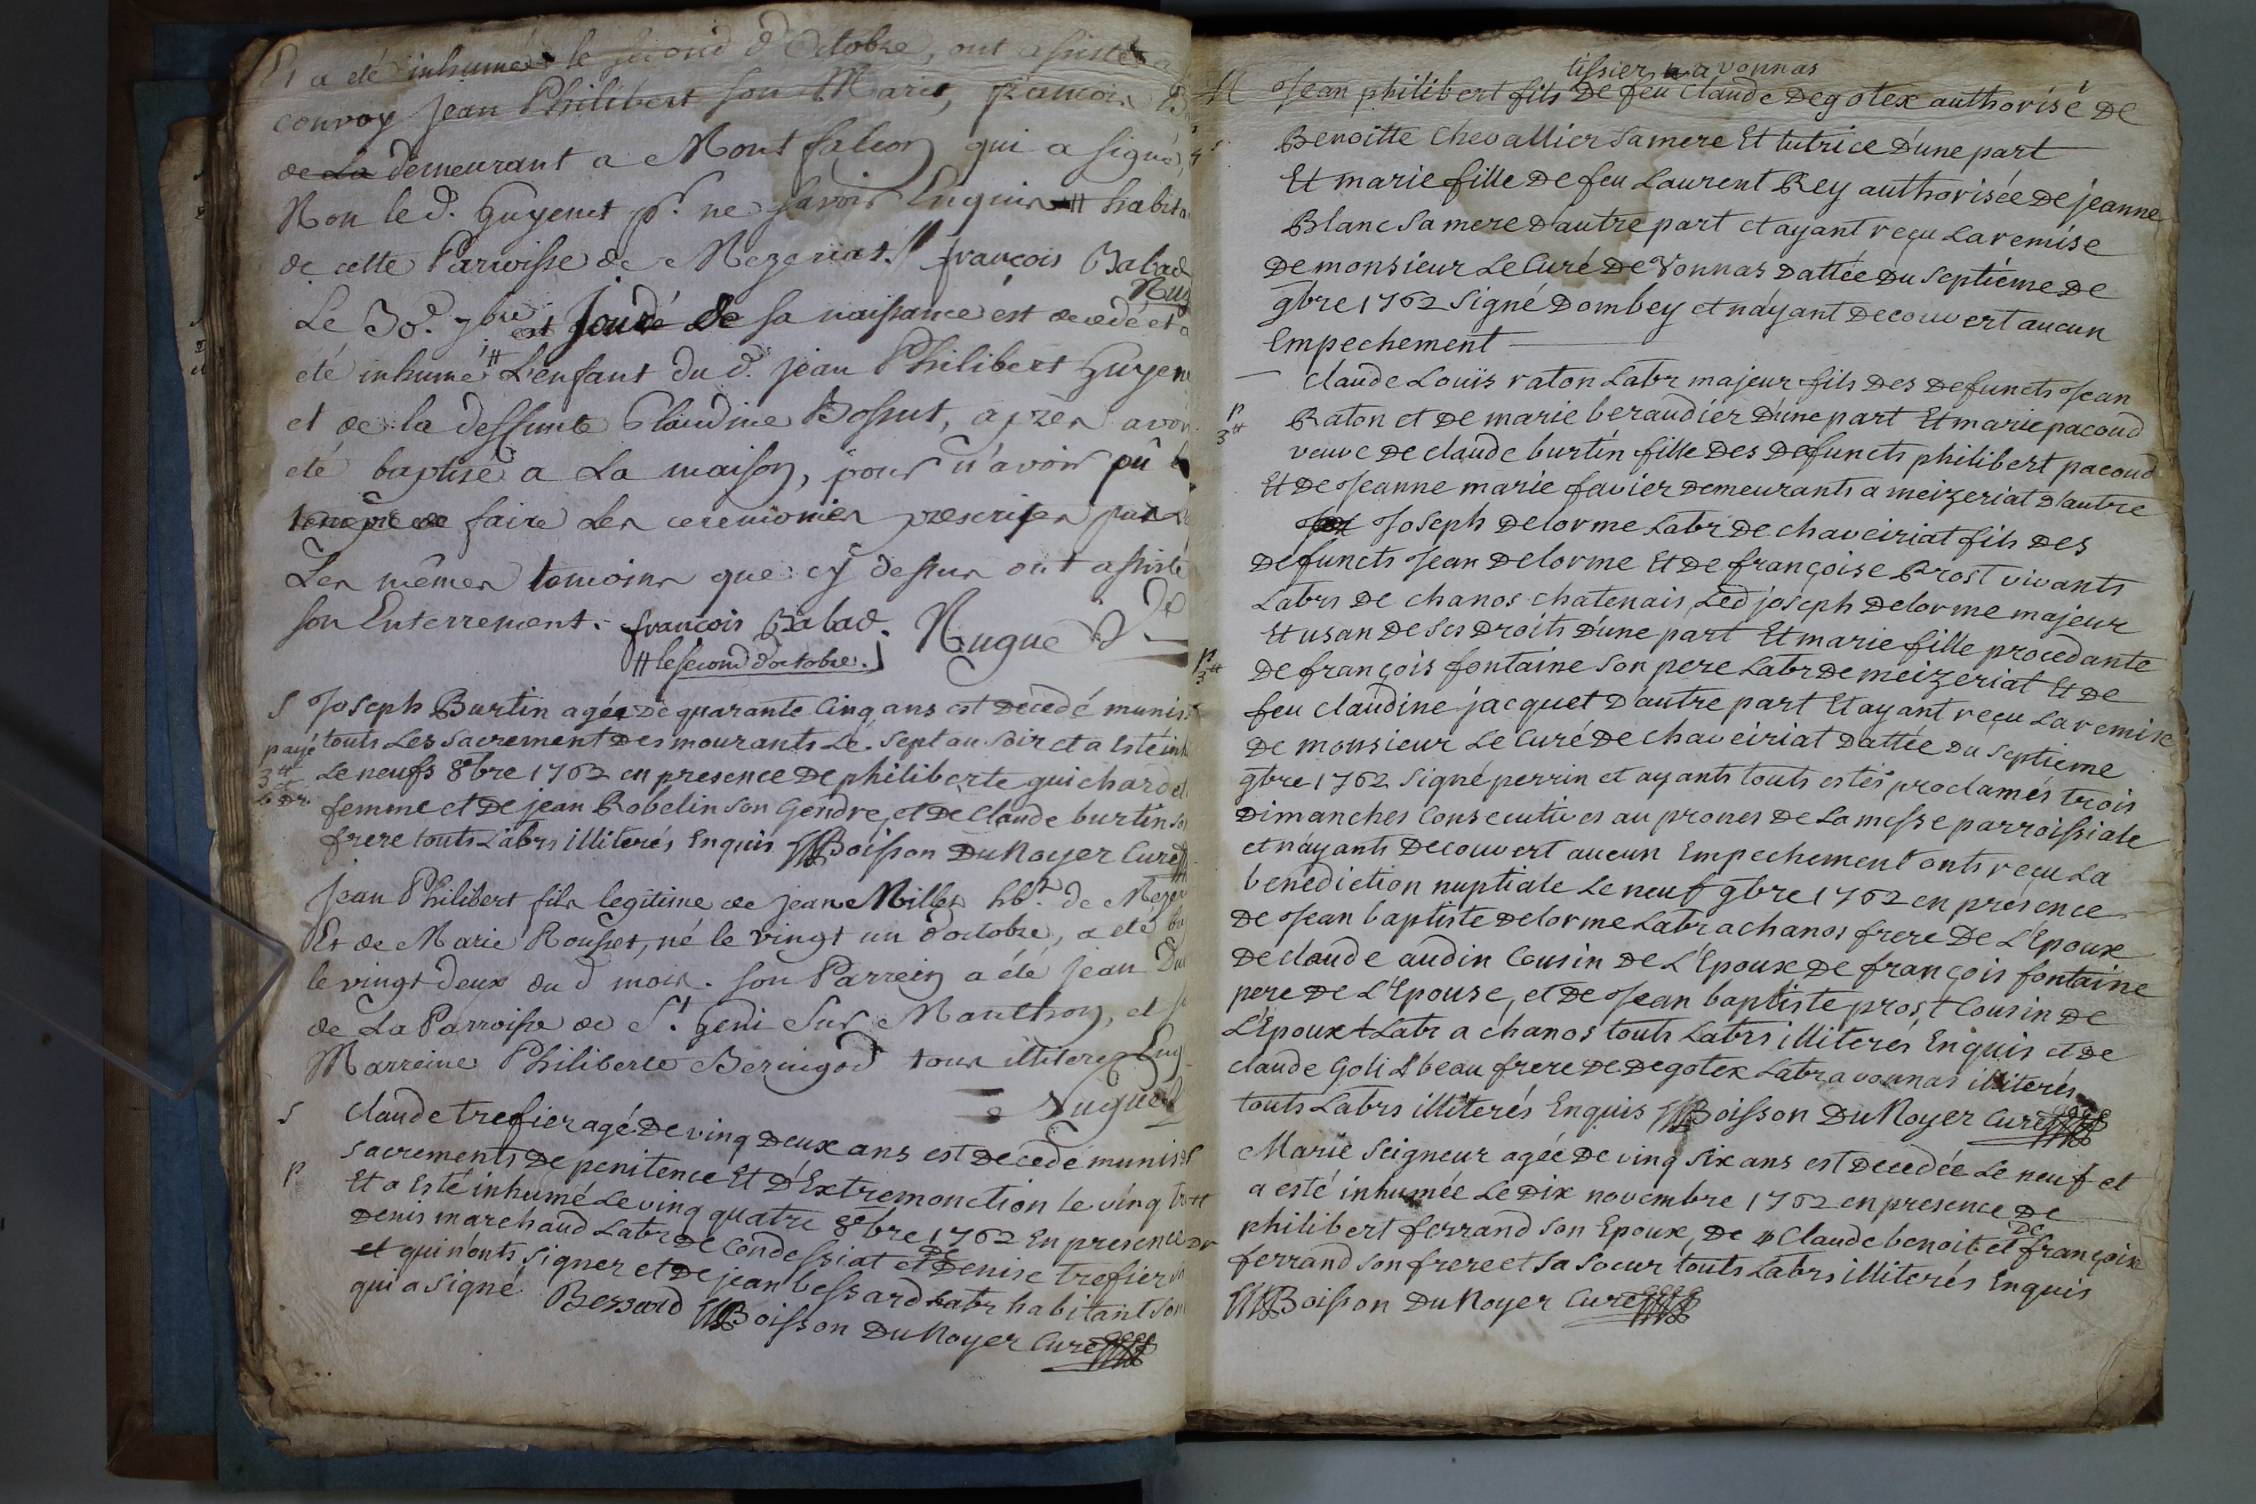 Et a eté inhumée le second d'Octobre, ont assisté a
convoy Jean Philibert son Mari, francois
de La demeurant a Montfalcon qui a signé,
Non le d. Guyenet pr. ne savoir Enquis # habita
de cette Parroisse de Mezeriat. // francois Balad
Nug
Le 30e. 7bre jour de sa naissance est decedé et a
été inhumé # L'enfant du d. jean Philibert Guyen
et de la deffunte Claudine Bossut, après avoir
été baptisé a La maison, pour n'avoir pû
faire Les ceremonies prescrites par
Les mêmes temoins que cy dessus ont assisté
son Enterrement. francois Balad. Nugue
# le second d'octobre.
S Joseph Burtin agée De quarante Cinq ans est Décedé munis
payé touts Les sacrement Des mourants Le sept au soir et a Esté in
3# Le neufs 8bre 1762 en presence De philiberte guichard
femme et De jean Robelin son Gendre, et De Claude burtin so
frere touts Labrs illiterés Enquis Boisson Du Noyer Curé
Jean Philibert fils legitime de jean Millet hbt. de Mezer
Et de Marie Rousset, né le vingt un d'octobre, a été ba
le vingt deux du d mois. son Parrein a été jean Du
de La Parroisse de St. Geni Sur Manthon, et s
Marreine Philiberte Beringod tous illiteres Enq
Nugue
S claude trefier agé De vinq Deux ans est Decede munis D
sacrements De penitence Et D'Extremonction le vinq
P Et a Esté inhumé Le vinq quatre 8bre 1762 En presence
Denis marchaud Labr De Condessiat et De Denise trefier
et qui n'onts signer et De jean bessard Labr habitant son
qui a signé Bessard Boisson Du Noyer Curé
tissier a vonnas
M Jean philibert fils De feu Claude Degotex authorisé De
Benoitte Chevallier sa mere Et tutrice D'une part
Et marie fille De feu Laurent Rey authorisée De jeanne
Blanc sa mere D'autre part et ayant reçu La remise
De monsieur Le Curé De Vonnas Dattée Du septiéme De
9bre 1762 signé Dombey et n'ayant Decouvert aucun
Empechement
claude Louis raton Labr majeur fils Des Defuncts Jean
P Raton et De marie beraudier D'une part Et marie pacoud
3# veuve De claude burtin fille Des Defuncts philibert pacoud
Et De Jeanne marie favier Demeurants a meizeriat D'autre
Joseph Delorme Labr De chaveiriat fils Des
Defuncts Jean Delorme Et De françoise Brost vivants
Labrs De chanos chatenais, Led joseph Delorme majeur
Et usan De ses Droits D'une part Et marie fille procedante
P De françois fontaine son pere Labr De meizeriat Et De
3# feu claudine jacquet D'autre part Et ayant reçu La remise
De monsieur Le Curé De chaveiriat Dattée Du septieme
9bre 1762 signé perrin et ayants touts estés proclamés trois
Dimanches Consecutives au prones De La messe parroissiale
et n'ayants Decouvert aucun Empechement onts reçu La
benediction nuptiale Le neuf 9bre 1762 en présence
De Jean baptiste Delorme Labr a chanos frere De L'Epoux
De claude audin Cousin De L'Epoux De françois fontaine
pere De L'Epouse, et De Jean baptiste prost Cousin De
L'Epoux Labr a chanos touts Labrs illiterés Enquis et De
claude Goli beau frere De Degotex Labr a vonnas illiterés
touts Labrs illiterés Enquis Boisson Du Noyer Curé
Marie seigneur agée De vinq six ans est Decedée Le neuf et
a esté inhumée Le Dix novembre 1762 en presence De
philibert ferrand son Epoux, De Claude benoit et De françoise
ferrand son frere et sa soeur touts Labrs illiterés Enquis
Boisson Du Noyer Curé